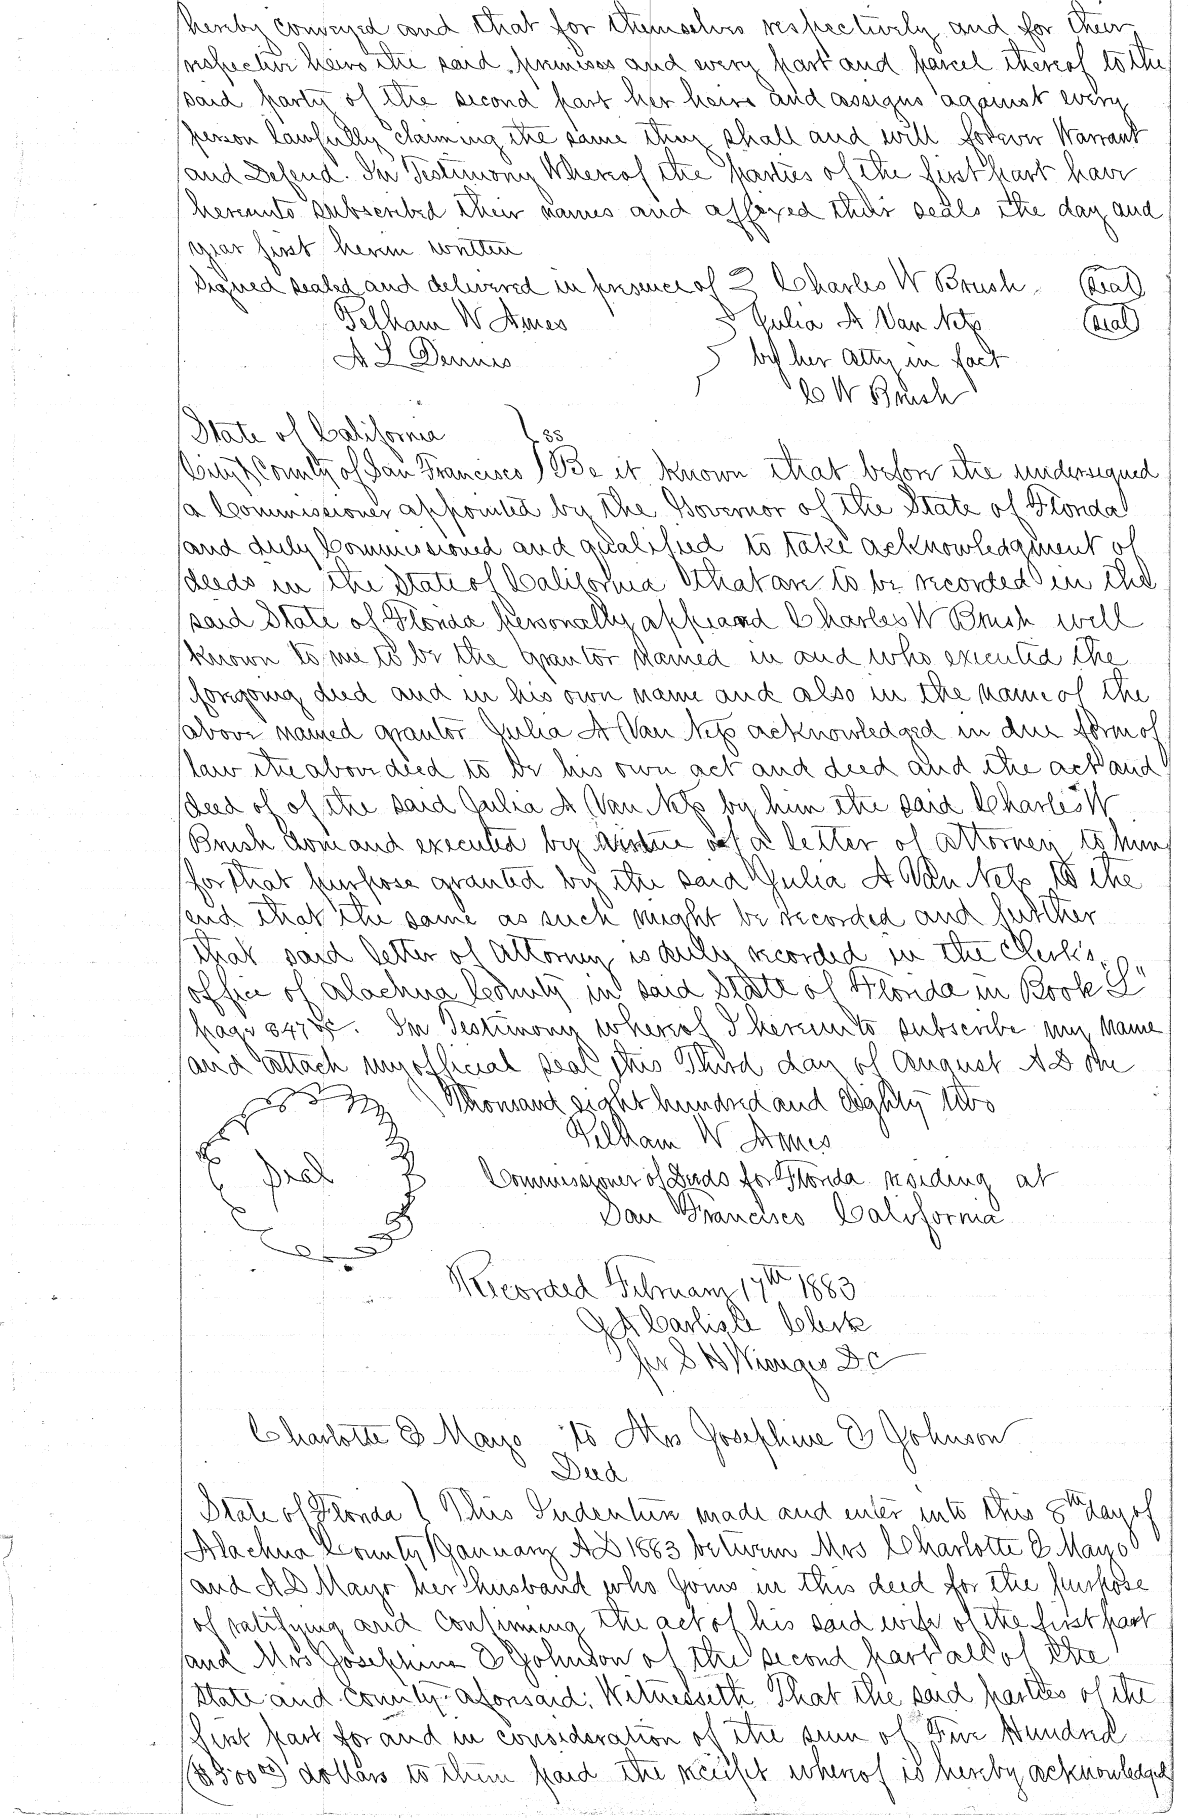 hereby conveyed and that for themselves respectively and for their
respective heirs the said premises and every part and parcel thereof to the
said party of the second part her heirs and assigns against every
person lawfully claiming the same they shall and will forever Warrant
and Defend. In Testimony Whereof the parties of the first part have
hereunto subscribed their names and affixed their seals the day and
year first herein written
Signed sealed and delivered in presence of Charles W Brush (Seal)
Pelham W Ames Julia A Van Ness (Seal)
A L Dennis by her atty in fact
C W Brush
State of California } ss
City & County of San Francisco } Be it known that before the undersigned
a Commissioner appointed by the Governor of the State of Florida
and duly Commissioned and qualified to take acknowledgment of
deeds in the State of California that are to be recorded in the
said State of Florida personally appeared Charles W Brush well
known to me to be the grantor named in and who executed the
foregoing deed and in his own name and also in the name of the
above named grantor Julia A Van Ness acknowledged in due form of
law the above deed to be his own act and deed and the act and
deed of of the said Julia A Van Ness by him the said Charles W
Brush done and executed by virtue of a letter of attorney to him
for that purpose granted by the said Julia A Van Ness to the
end that the same as such might be recorded and further
that said letter of attorney is duly recorded in the Clerk's
office of Alachua County in said State of Florida in Book "L"
page 847 &c. In Testimony whereof I hereunto subscribe my name
and attach my official seal this Third day of August AD one
Thousand eight hundred and Eighty two
Pelham W Ames
Seal Commissioner of Deeds for Florida residing at
San Francisco California
Recorded February 17th 1883
J A Carlisle Clerk
per S H Wienges D C
Charlotte E Mayo to Mrs Josephine E Johnson
Deed
State of Florida } This Indenture made and enter into this 8th day of
Alachua County } January AD 1883 between Mrs Charlotte E Mayo
and A D Mayo her husband who joins in this deed for the purpose
of ratifying and confirming the act of his said wife of the first part
and Mrs Josephine E Johnson of the second part all of the
State and County aforesaid; Witnesseth That the said parties of the
first part for and in consideration of the sum of Five Hundred
($500 00) dollars to them paid the receipt whereof is hereby acknowledged